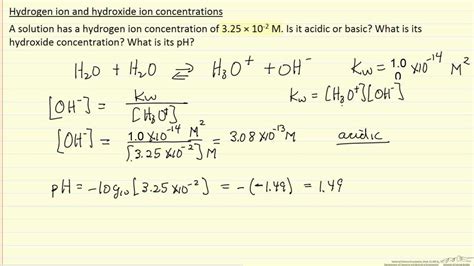 Hydrogen ion and hydroxide ion concentrations
A solution has a hydrogen ion concentration of 3.25 × 10⁻² M. Is it acidic or basic? What is its
hydroxide concentration? What is its pH?
H₂O + H₂O ⇌ H₃O⁺ + OH⁻ Kw = 1.0 ×10⁻¹⁴ M²
[OH⁻] = Kw / [H₃O⁺] Kw = [H₃O⁺][OH⁻]
[OH⁻] = 1.0 ×10⁻¹⁴ M² / [3.25 ×10⁻²] M = 3.08 ×10⁻¹³ M acidic
pH = -log₁₀ [3.25 ×10⁻²] = -(-1.49) = 1.49